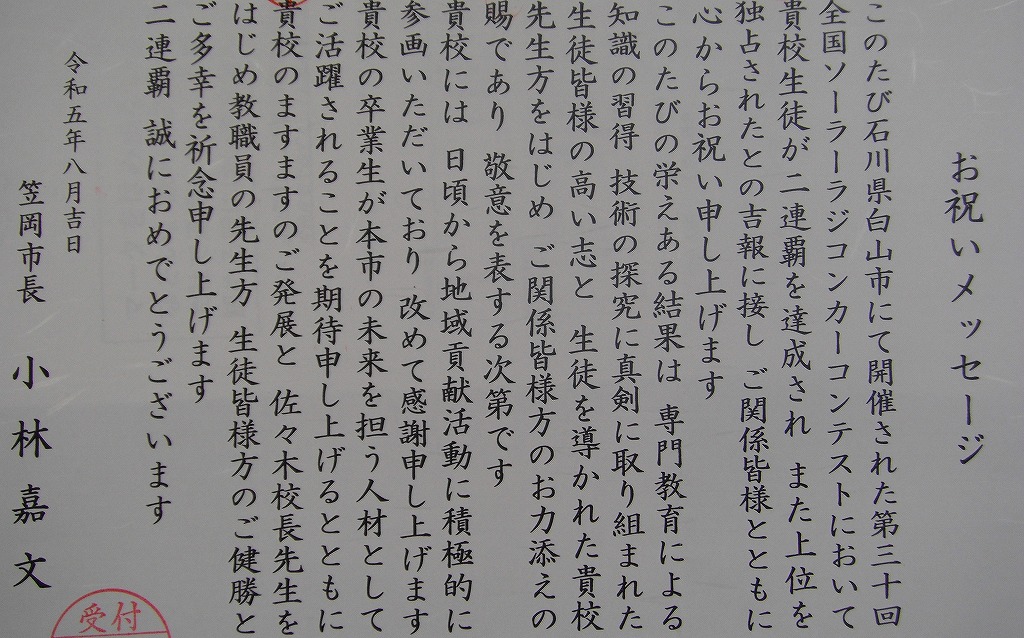 お祝いメッセージ
このたび石川県白山市にて開催された第三十回
全国ソーラーラジコンカーコンテストにおいて
貴校生徒が二連覇を達成され また上位を
独占されたとの吉報に接し ご関係皆様とともに
心からお祝い申し上げます
このたびの栄えある結果は 専門教育による
知識の習得 技術の探究に真剣に取り組まれた
生徒皆様の高い志と 生徒を導かれた貴校
先生方をはじめ ご関係皆様方のお力添えの
賜であり 敬意を表する次第です
貴校には 日頃から地域貢献活動に積極的に
参画いただいており 改めて感謝申し上げます
貴校の卒業生が本市の未来を担う人材として
ご活躍されることを期待申し上げるとともに
貴校のますますのご発展と 佐々木校長先生を
はじめ教職員の先生方 生徒皆様方のご健勝と
ご多幸を祈念申し上げます
二連覇 誠におめでとうございます
令和五年八月吉日
笠岡市長 小林嘉文
受付